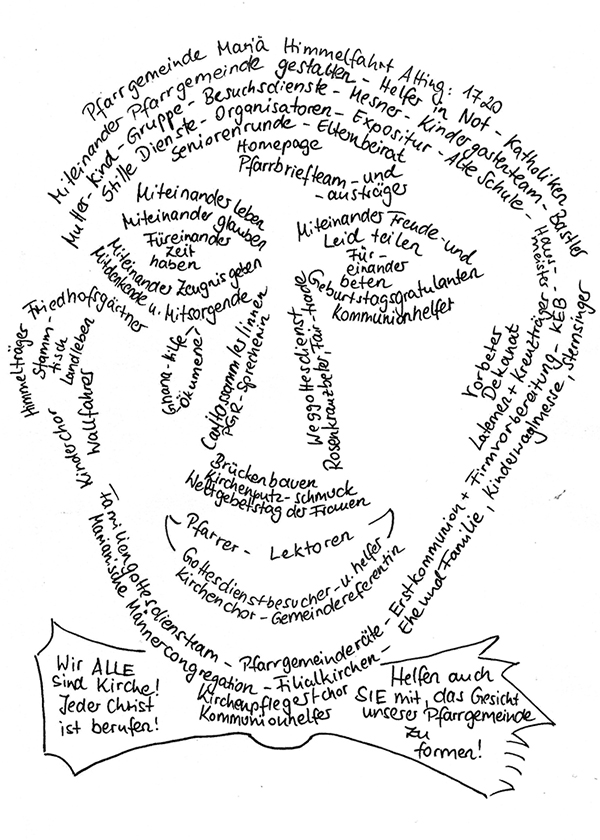 Pfarrgemeinde Mariä Himmelfahrt Alting: 1720
Miteinander Pfarrgemeinde gestalten - Helfer in Not - Katholiken
Mutter-Kind-Gruppe - Besuchsdienste - Mesner - Kindergartenteam - Bastler
Stille Dienste - Organisatoren - Expositur - Alte Schule - Hausmeister
Seniorenrunde - Elternbeirat
Homepage
Pfarrbriefteam - und
- austräger
Miteinander leben
Miteinander glauben
Füreinander
Zeit
haben
Miteinander Zeugnis geben
Mitdenkende u. Mitsorgende
Miteinander Freude - und
Leid teilen
Für-
einander
beten
Geburtstagsgratulanten
Kommunionhelfer
Friedhofsgärtner
Himmelträger
Stamm-
tisch
Landleben
Kinderchor
Wallfahrer
Ghana-Hilfe
Ökumene
Caritassammlerinnen
PGR-Sprecherin
Weggottesdienst
Rosenkranzbeter, Fair-Trade
Vorbeter
Dekanat
Laternen + Kreuzträger
Brückenbauen
Kirchenputz - schmuck
Weltgebetstag der Frauen
Pfarrer - Lektoren
Gottesdienstbesucher - u. helfer
Kirchenchor - Gemeindereferentin
Familiengottesdienstteam - Pfarrgemeinderäte - Erstkommunion + Firmvorbereitung - KEB
Marianische Männercongregation - Filialkirchen - Ehe und Familie, Kinderwaglmesse, Sternsinger
Kirchenpfleger Stchor
Kommunionhelfer
Wir ALLE
sind Kirche!
Jeder Christ
ist berufen!
Helfen auch
SIE mit, das Gesicht
unserer Pfarrgemeinde
zu
formen!